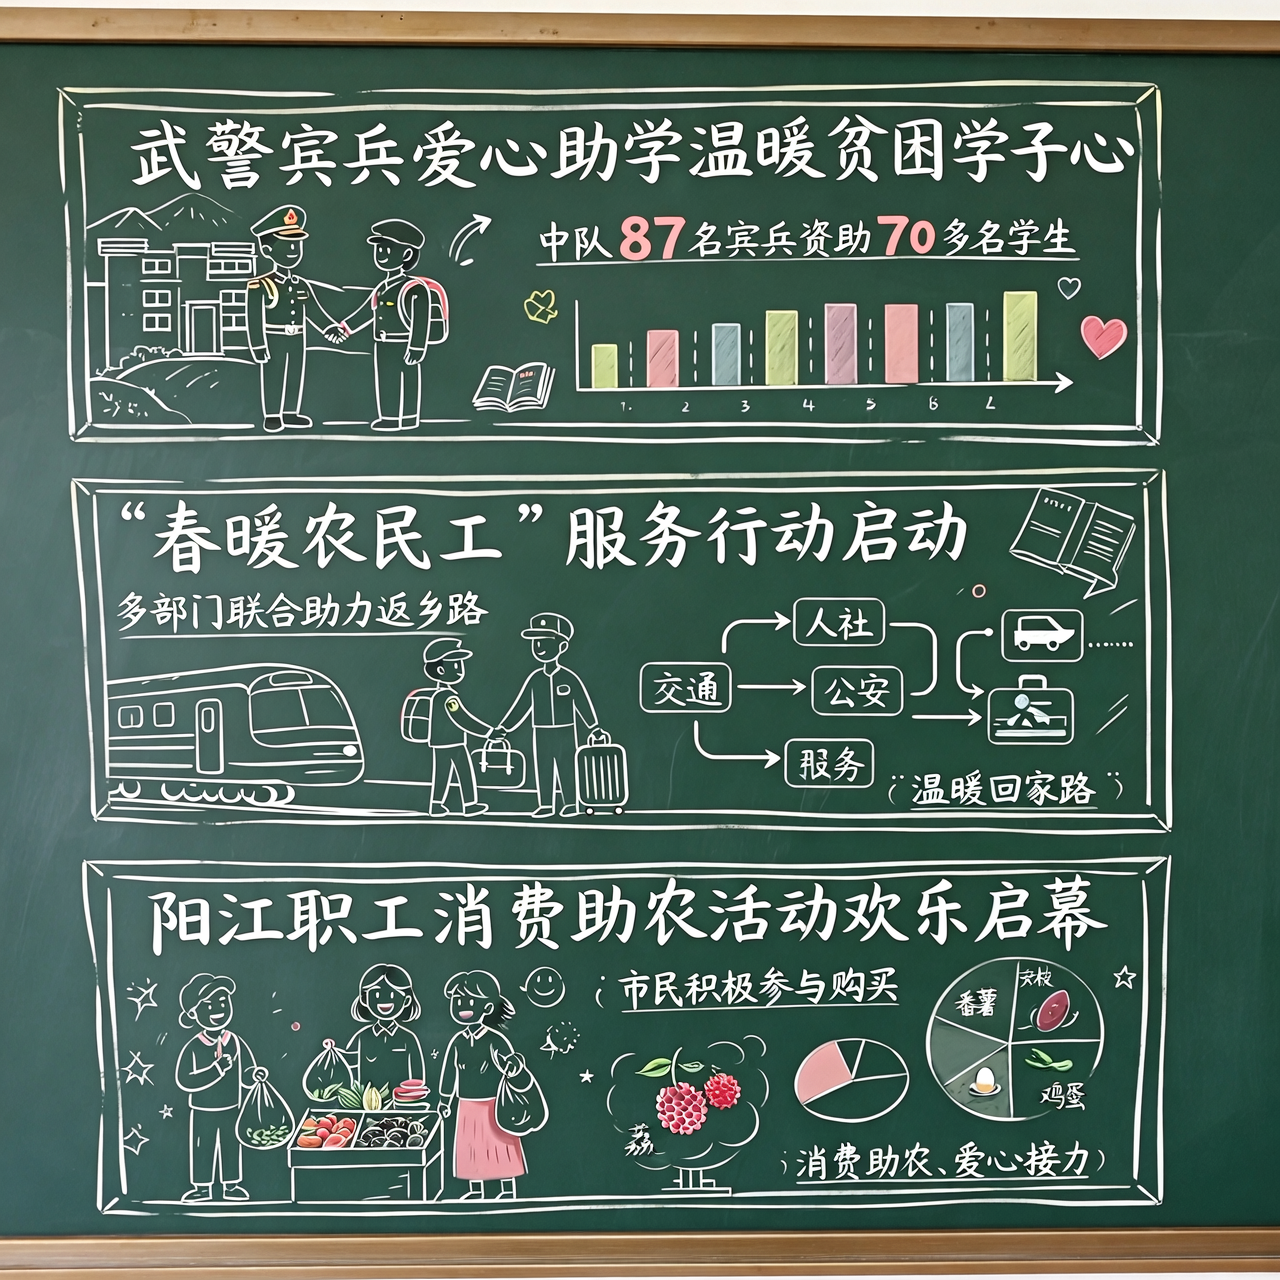 武警宾兵爱心助学温暖贫困学子心
中队87名宾兵资助70多名学生
1. 2 3 4 5 6
“春暖农民工”服务行动启动
多部门联合助力返乡路
人社
交通
公安
服务
“温暖回家路”
阳江职工消费助农活动欢乐启幕
市民积极参与购买
番薯
鸡蛋
荔
消费助农、爱心接力